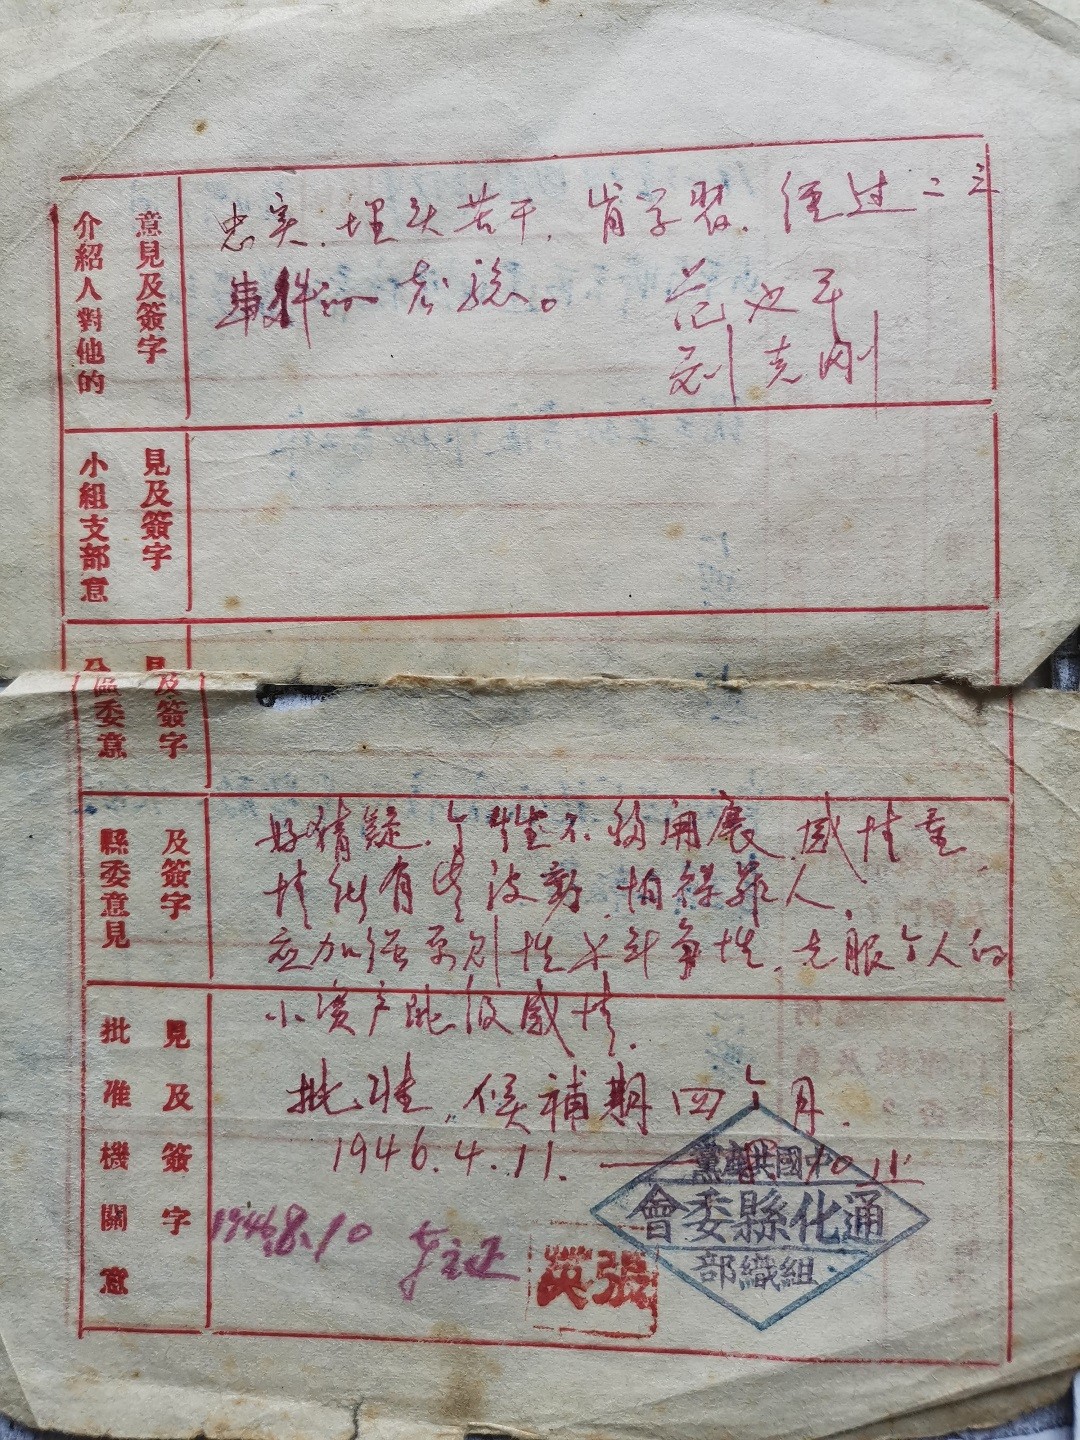 介紹人對他的
意見及簽字
忠实、埋头苦干，肯学習、经过二三
事件的考验。
范文平
刘克刚
小組支部意
見及簽字
分區委意
見及簽字
縣委意見
及簽字
好猜疑，个性不够開展，感情重，
情绪有些波動，怕得罪人，
应加强原则性与斗争性，克服个人的
小资产阶级感情。
批准機關意
見及簽字
批准，候補期四个月。
1946.4.11.——8.10止
1946.8.10 转正
中國共產黨
通化縣委會
組織部